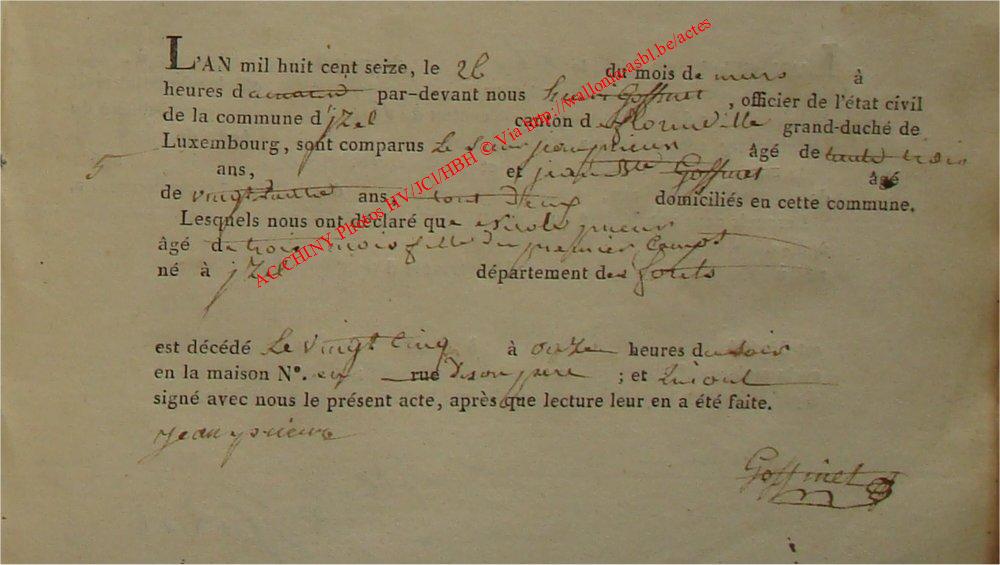 L'AN mil huit cent seize, le 26 du mois de mars à
heures d par-devant nous Goffinet, officier de l'état civil
de la commune d'jzel canton d florenville grand-duché de
Luxembourg, sont comparus Le Sieur jean prieur âgé de trente trois
5 ans, et jean Bte Goffinet âgé
de vingt ans, tout deux domiciliés en cette commune.
Lesquels nous ont déclaré que nicole prieur
âgé de trois mois fille du premier Comp
né à jzel département des forets
est décédé Le vingt Cinq à onze heures du soir
en la maison N°. rue de son pere ; et ont
signé avec nous le présent acte, après que lecture leur en a été faite.
jean prieur
Goffinet
AC/CHINY Photos HV/JCl/HBH © Via http://walloniaasbl.be/actes